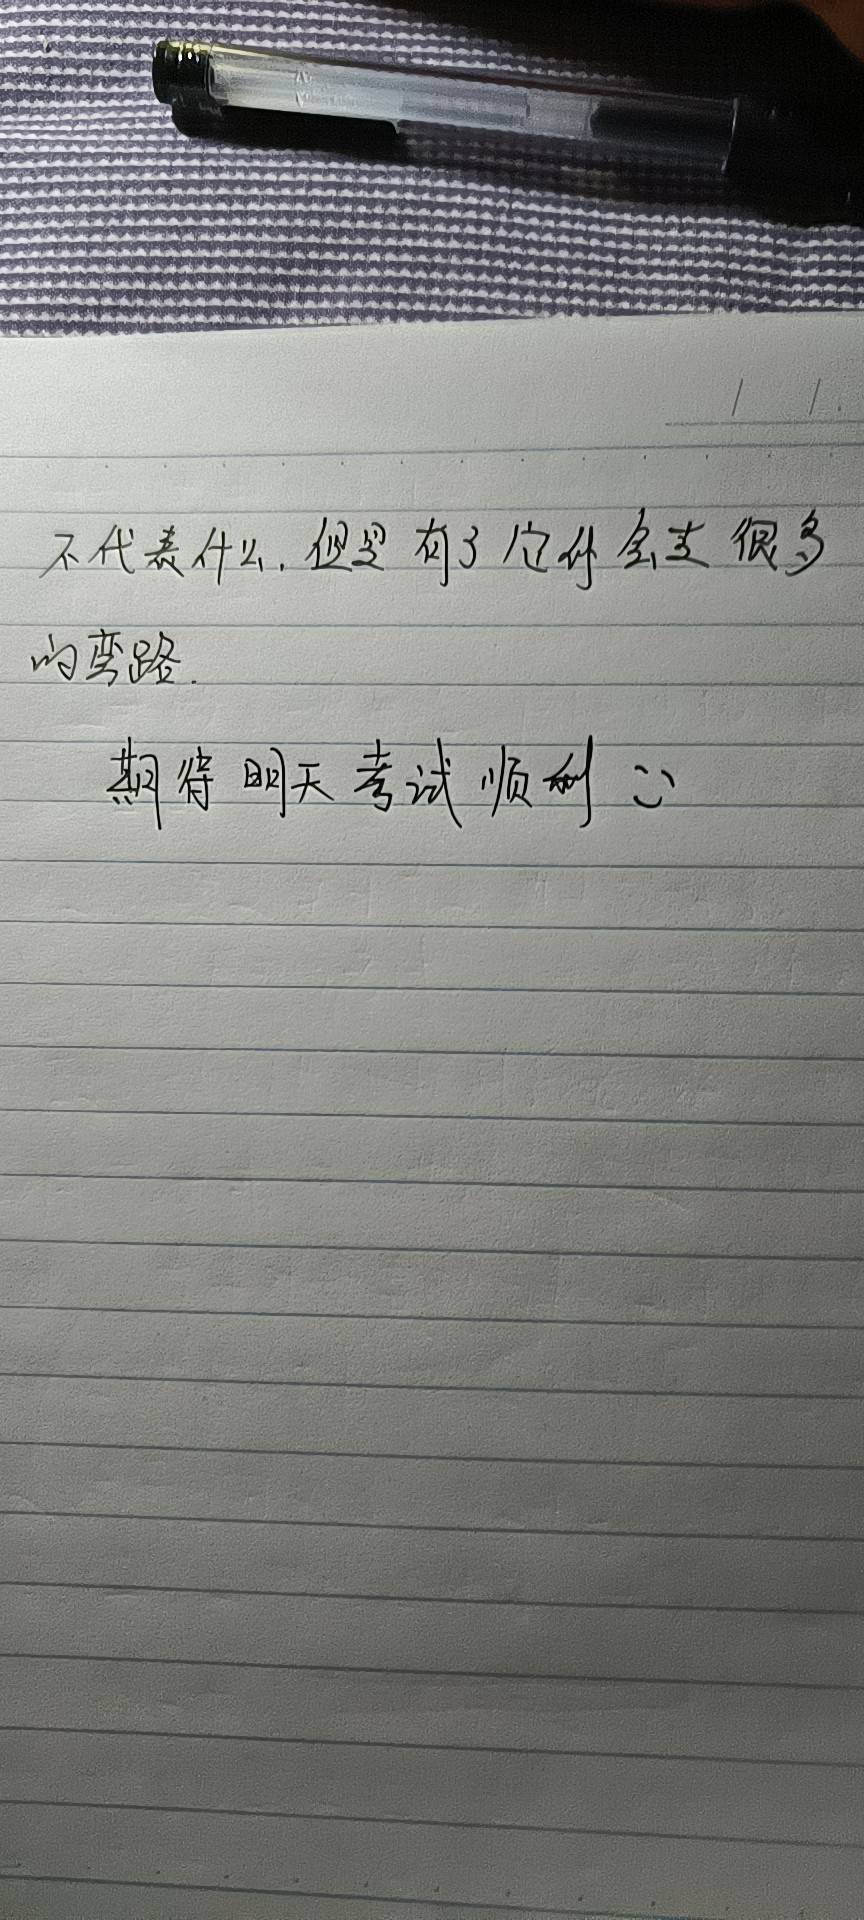 不代表什么.但是有了它你会走很多
的弯路.
期待明天考试顺利 :)